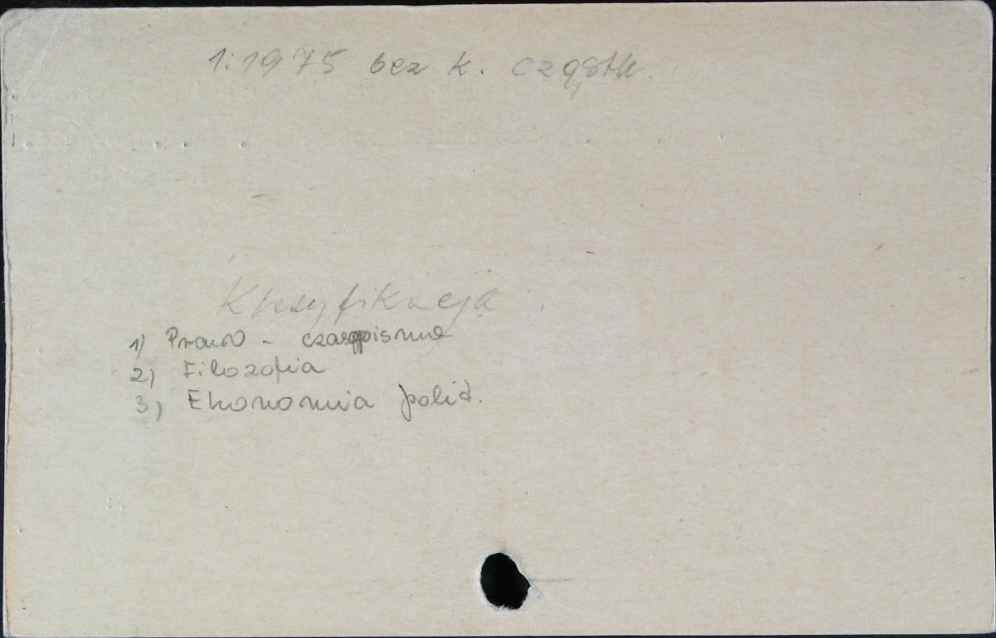 1:1975 bez k. cząstk.
Klasyfikacja
1) Prawo - czasopisma
2) Filozofia
3) Ekonomia polit.